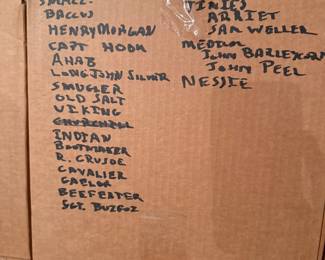 SMALL:
BACCUS
HENRY MORGAN
CAPT HOOK
AHAB
LONG JOHN SILVER
SMUGLER
OLD SALT
VIKING
CHURCHILL
INDIAN
BOOTMAKER
R. CRUSOE
CAVALIER
BEEFEATER
SGT. BUZFUZ
TINIES
ARRIET
SAM WELLER
MEDIUM
JOHN BARLEYCORN
JOHN PEEL
NESSIE